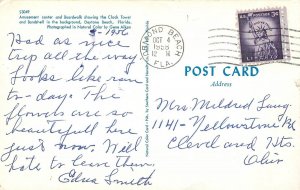 S3049
Amusement center and Boardwalk showing the Clock Tower
and bandshell in the background, Daytona Beach, Florida.
Photographed in Natural Color by Gene Aiken
Had as nice
trip all the way.
Looks like rain
to-day. The
flowers are so
beautiful here
just now. Will
hate to leave them.
Edna Smith
ORMOND BEACH
OCT 4
1956
FLA.
3¢
LIBERTY
POST CARD
Address
Mrs Mildred Lang
1141 - Yellowstone Rd
Cleveland Hts.
Ohio